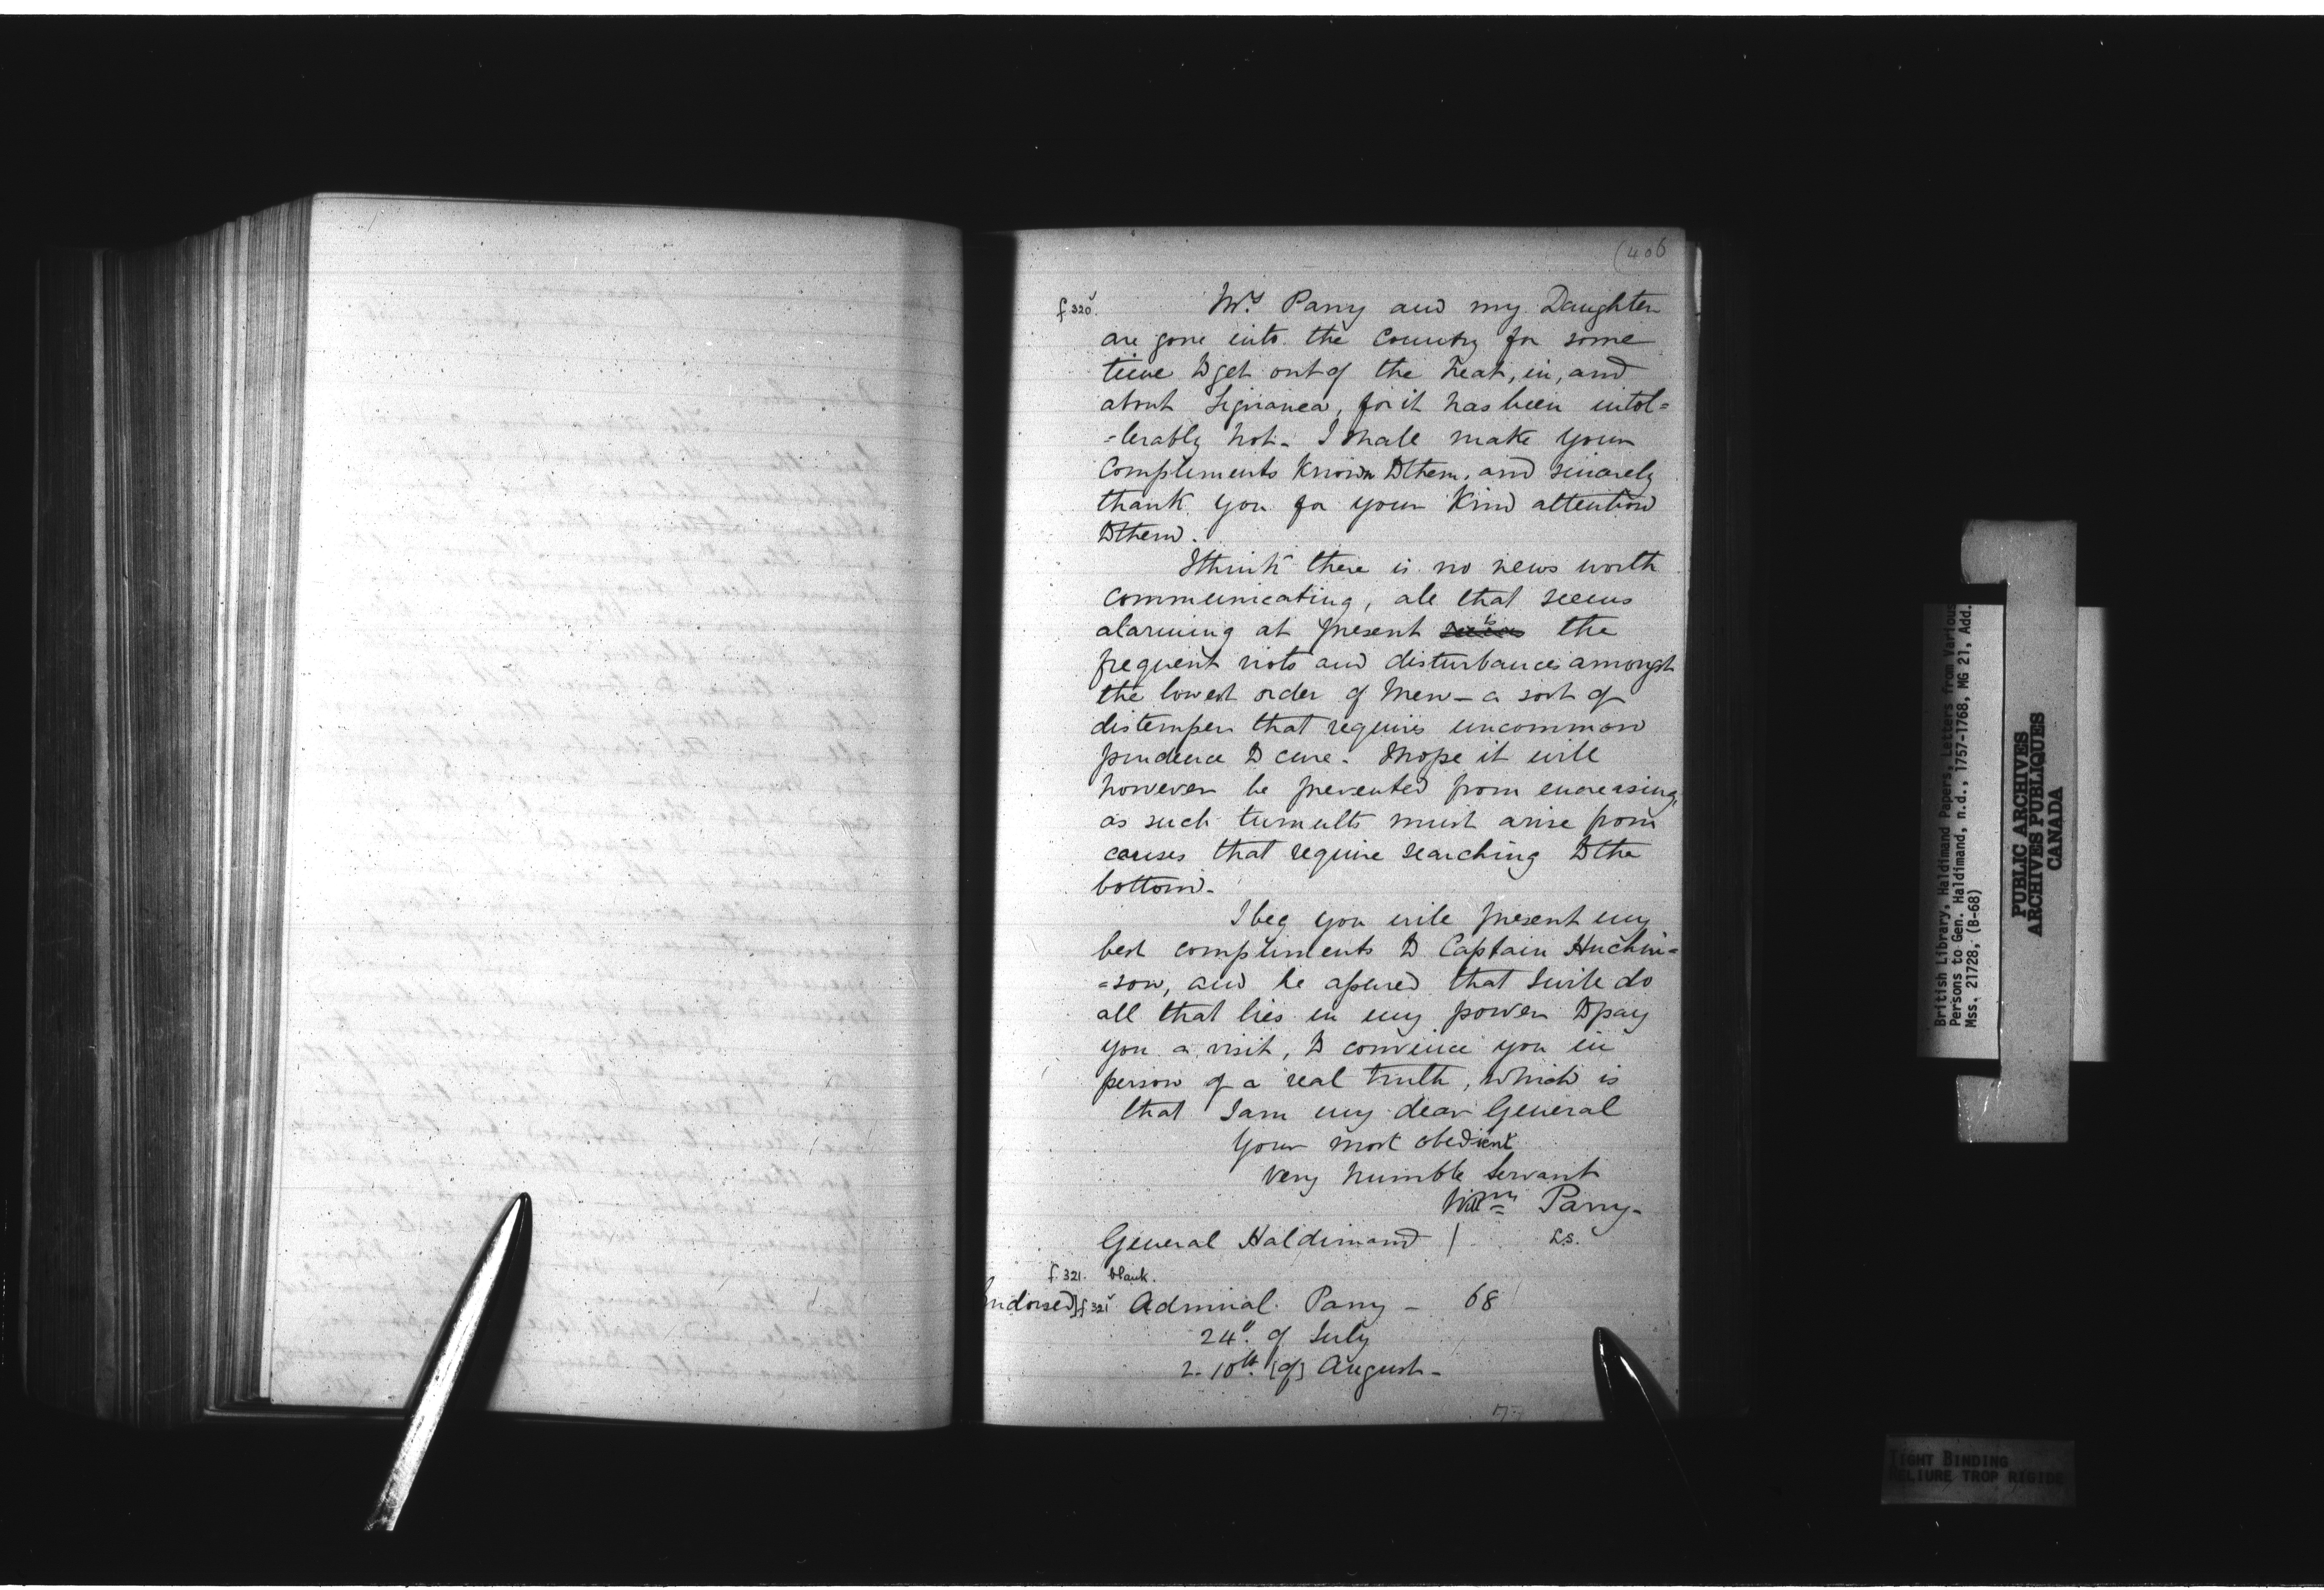 (406
f 320v.
Mrs. Parry and my Daughter
are gone into the Country for some
time to get out of the heat, in, and
about Liguanea, for it has been intol=
=lerably hot - I shall make your
Compliments Known to them, and sincerely
thank you for your Kind attention
to them.
I think there is no news worth
communicating, all that seems
alarming at present is the
frequent riots and disturbances amongst
the lowest order of Men - a sort of
distemper that requires uncommon
prudence to cure. I hope it will
however be prevented from encreasing,
as such tumults must arise from
causes that require searching to the
bottom -
I beg you will present my
best compliments to Captain Huchin=
=son, and be assured that I will do
all that lies in my power to pay
you a visit, to convince you in
person of a real truth, which is
that I am my dear General
your most obedient
very humble Servant
Willm Parry -
General Haldimand / L.S.
f. 321. blank.
Endorsed] f 321v Admiral Parry - 68
24th. of July
2 - 10th. [of] August -
British Library, Haldimand Papers, Letters from Various
Persons to Gen. Haldimand, n.d., 1757-1768, MG 21, Add.
Mss. 21728, (B-68)
PUBLIC ARCHIVES
ARCHIVES PUBLIQUES
CANADA
TIGHT BINDING
RELIURE TROP RIGIDE